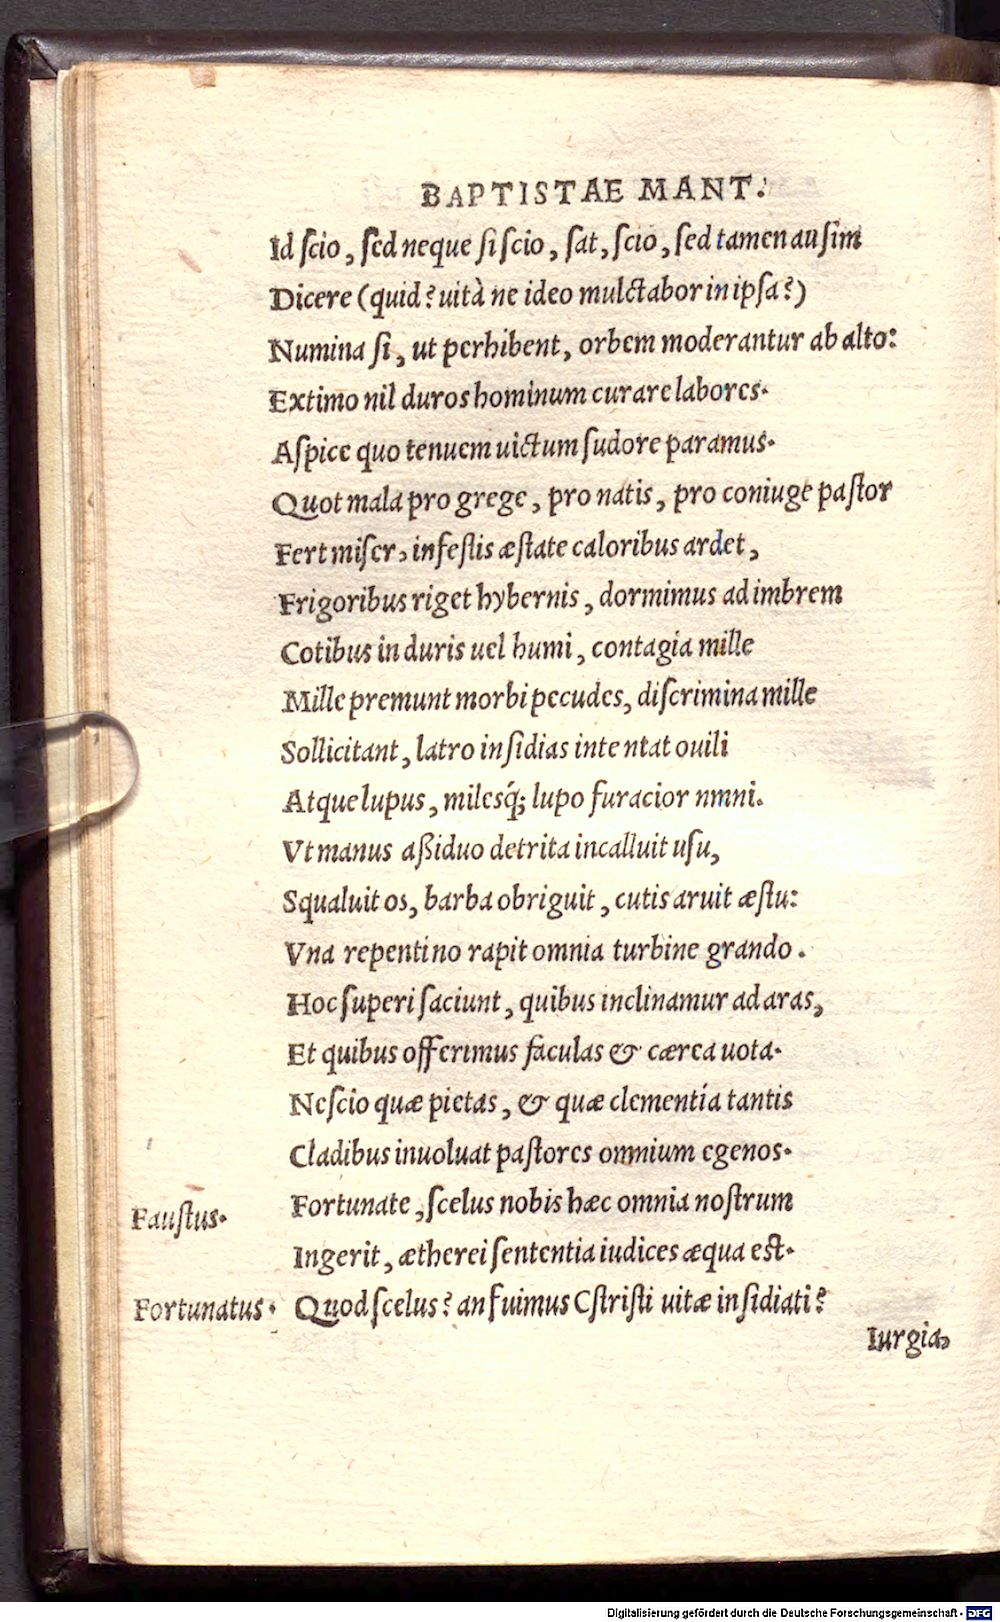 BAPTISTAE MANT.
Id ſcio, ſed neque ſi ſcio, ſat, ſcio, ſed tamen auſim
Dicere (quid? uità ne ideo mulctabor in ipſa?)
Numina ſi, ut perhibent, orbem moderantur ab alto:
Extimo nil duros hominum curare labores.
Aſpice quo tenuem uictum ſudore paramus.
Quot mala pro grege, pro natis, pro coniuge paſtor
Fert miſer, infeſtis æſtate caloribus ardet,
Frigoribus riget hybernis, dormimus ad imbrem
Cotibus in duris uel humi, contagia mille
Mille premunt morbi pecudes, diſcrimina mille
Sollicitant, latro inſidias inte ntat ouili
Atque lupus, milesq́; lupo furacior nmni.
Vt manus aßiduo detrita incalluit uſu,
Squaluit os, barba obriguit, cutis aruit æſtu:
Vna repentino rapit omnia turbine grando.
Hoc ſuperi ſaciunt, quibus inclinamur ad aras,
Et quibus offerimus faculas & cærea uota.
Neſcio quæ pietas, & quæ clementía tantis
Cladibus inuoluat paſtores omnium egenos.
Fauſtus. Fortunate, ſcelus nobis hæc omnia noſtrum
Ingerit, ætherei ſententia iudices æqua est.
Fortunatus. Quod ſcelus? an fuimus Cſtriſti uitæ inſidiati?
Iurgia,
Digitalisierung gefördert durch die Deutsche Forschungsgemeinschaft - DFG